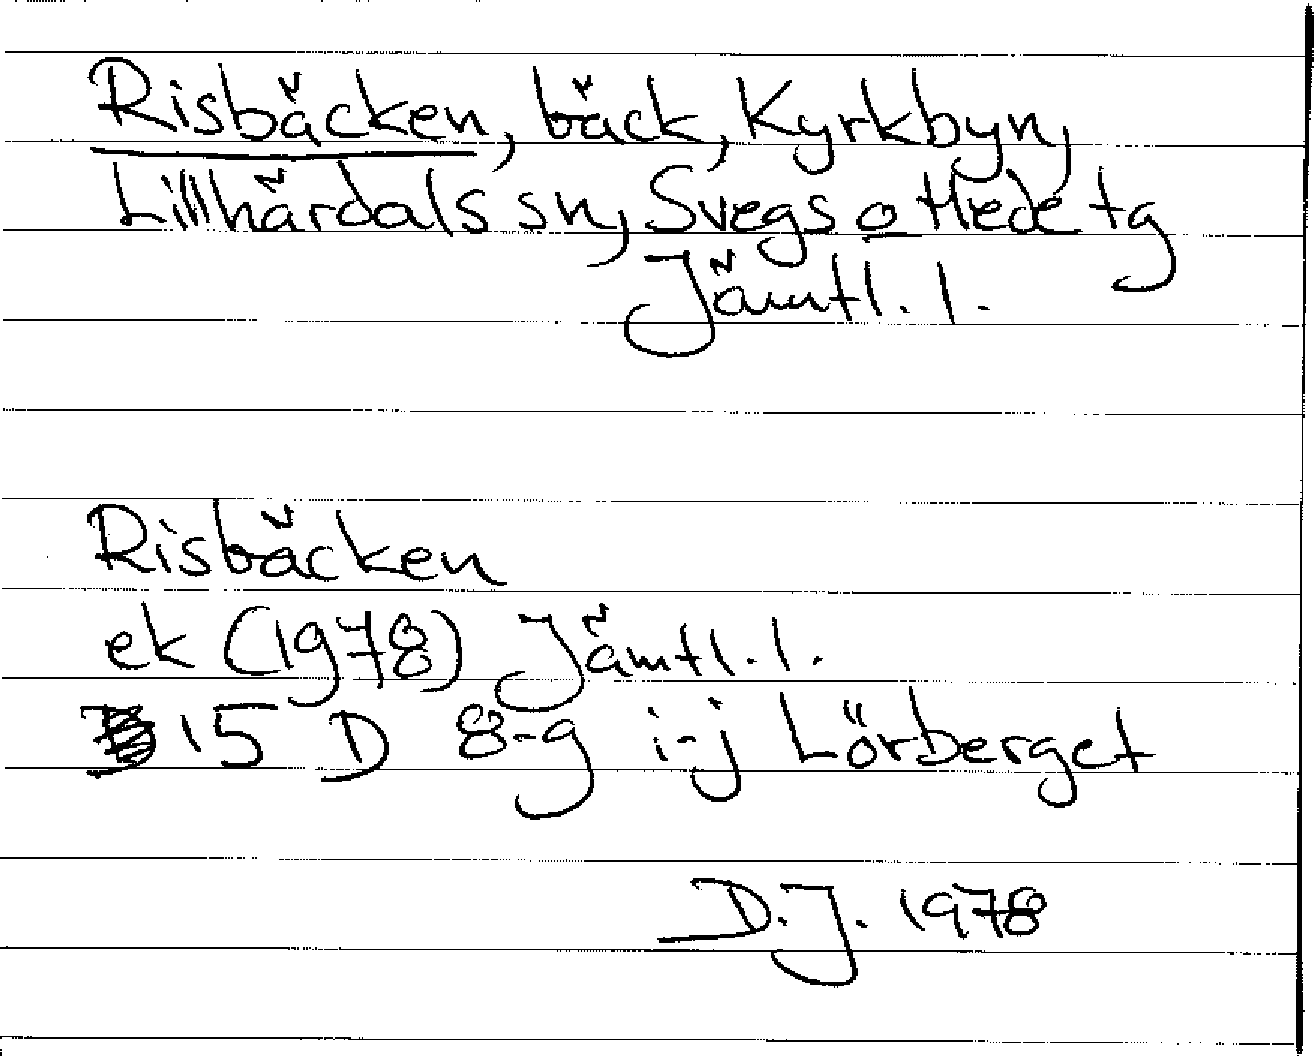 Risbäcken, bäck, Kyrkbyn,
Lillhärdals sn, Svegs o Hede tg
Jämtl. l.
Risbäcken
ek (1978) Jämtl. l.
15 D 8-g i-j Lörberget
D.J. 1978